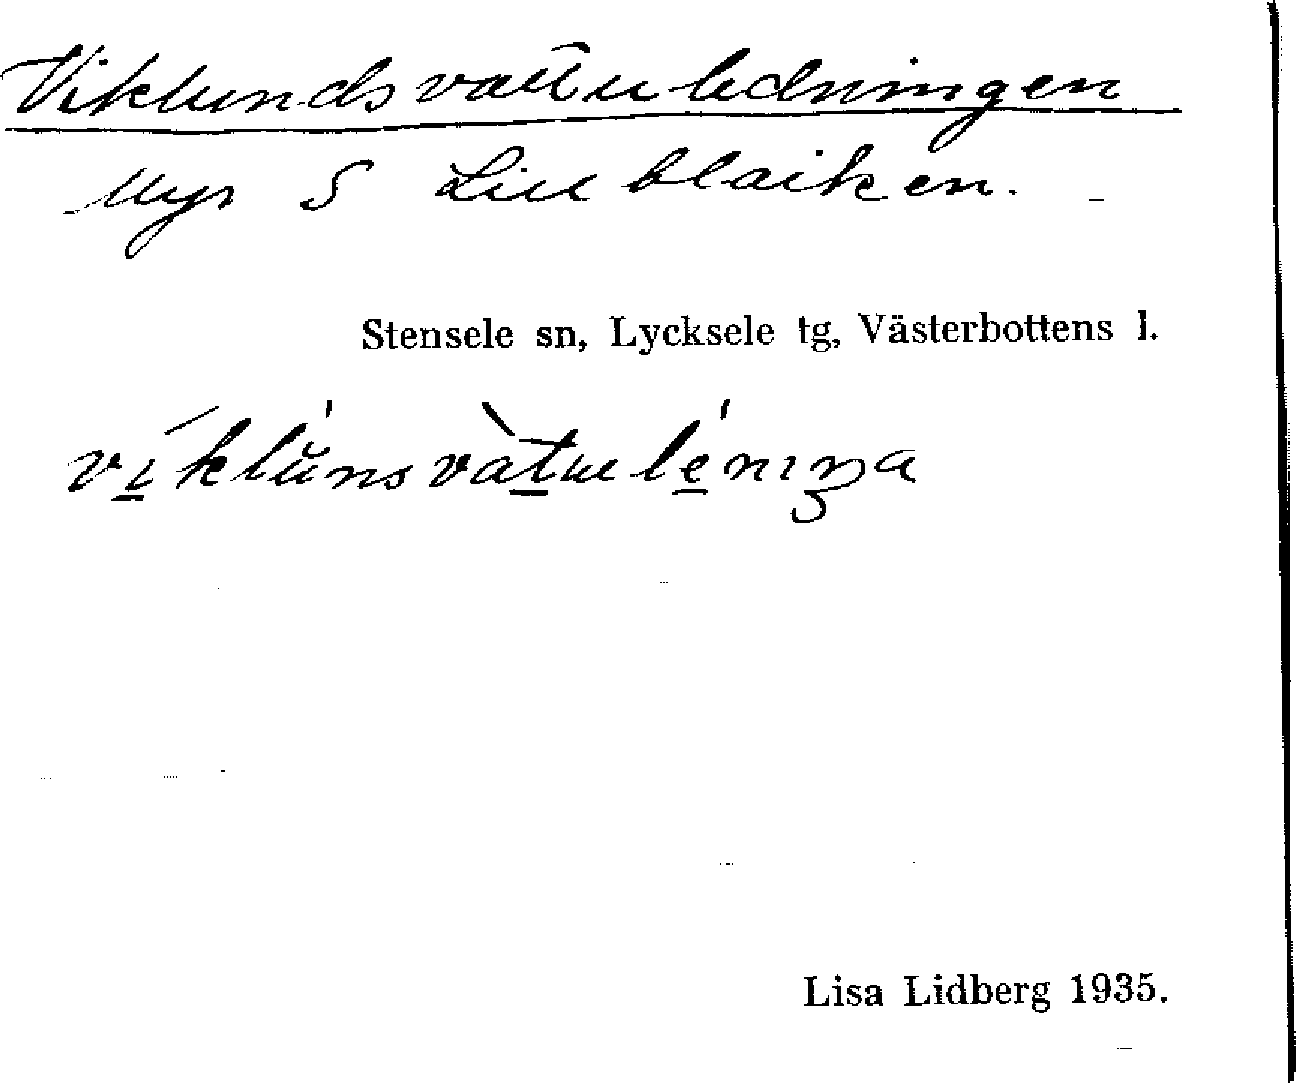 Viklundsvattuledningen
Myr S Lillblaiken.
Stensele sn, Lycksele tg, Västerbottens l.
víklŭnsvàtuléniŋa
Lisa Lidberg 1935.